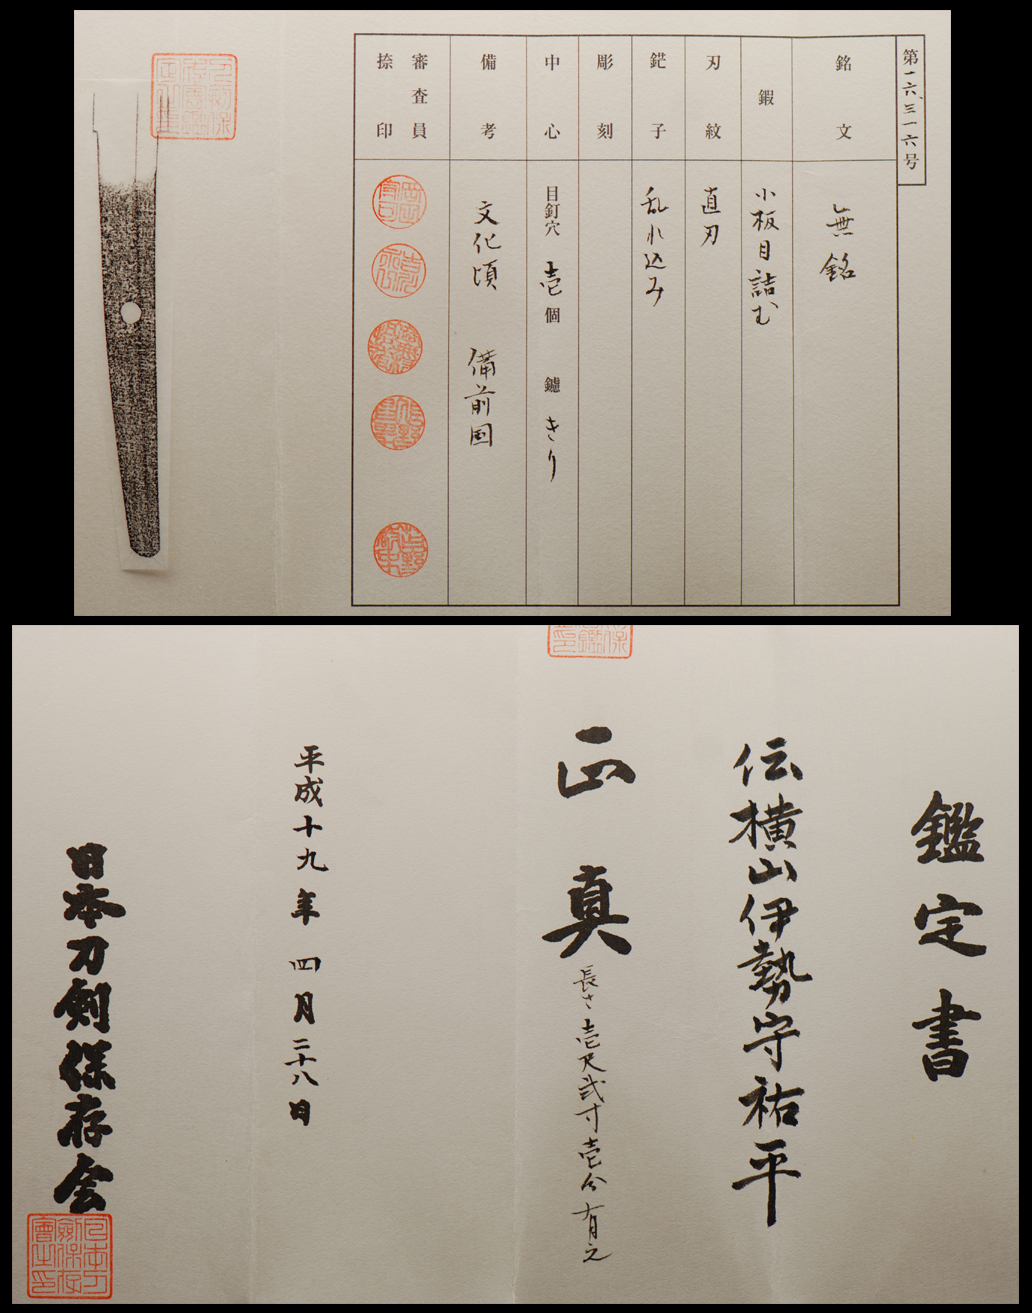 第一六、三一六号
銘文
無銘
鍜
小板目詰む
刃紋
直刃
鋩子
乱れ込み
彫刻
中心
目釘穴 壱個 鑢 きり
備考
文化頃 備前国
審査員
捺印
鑑定書
伝横山伊勢守祐平
正真
長さ壱尺弐寸壱分有之
平成十九年四月二十八日
日本刀剣保存会